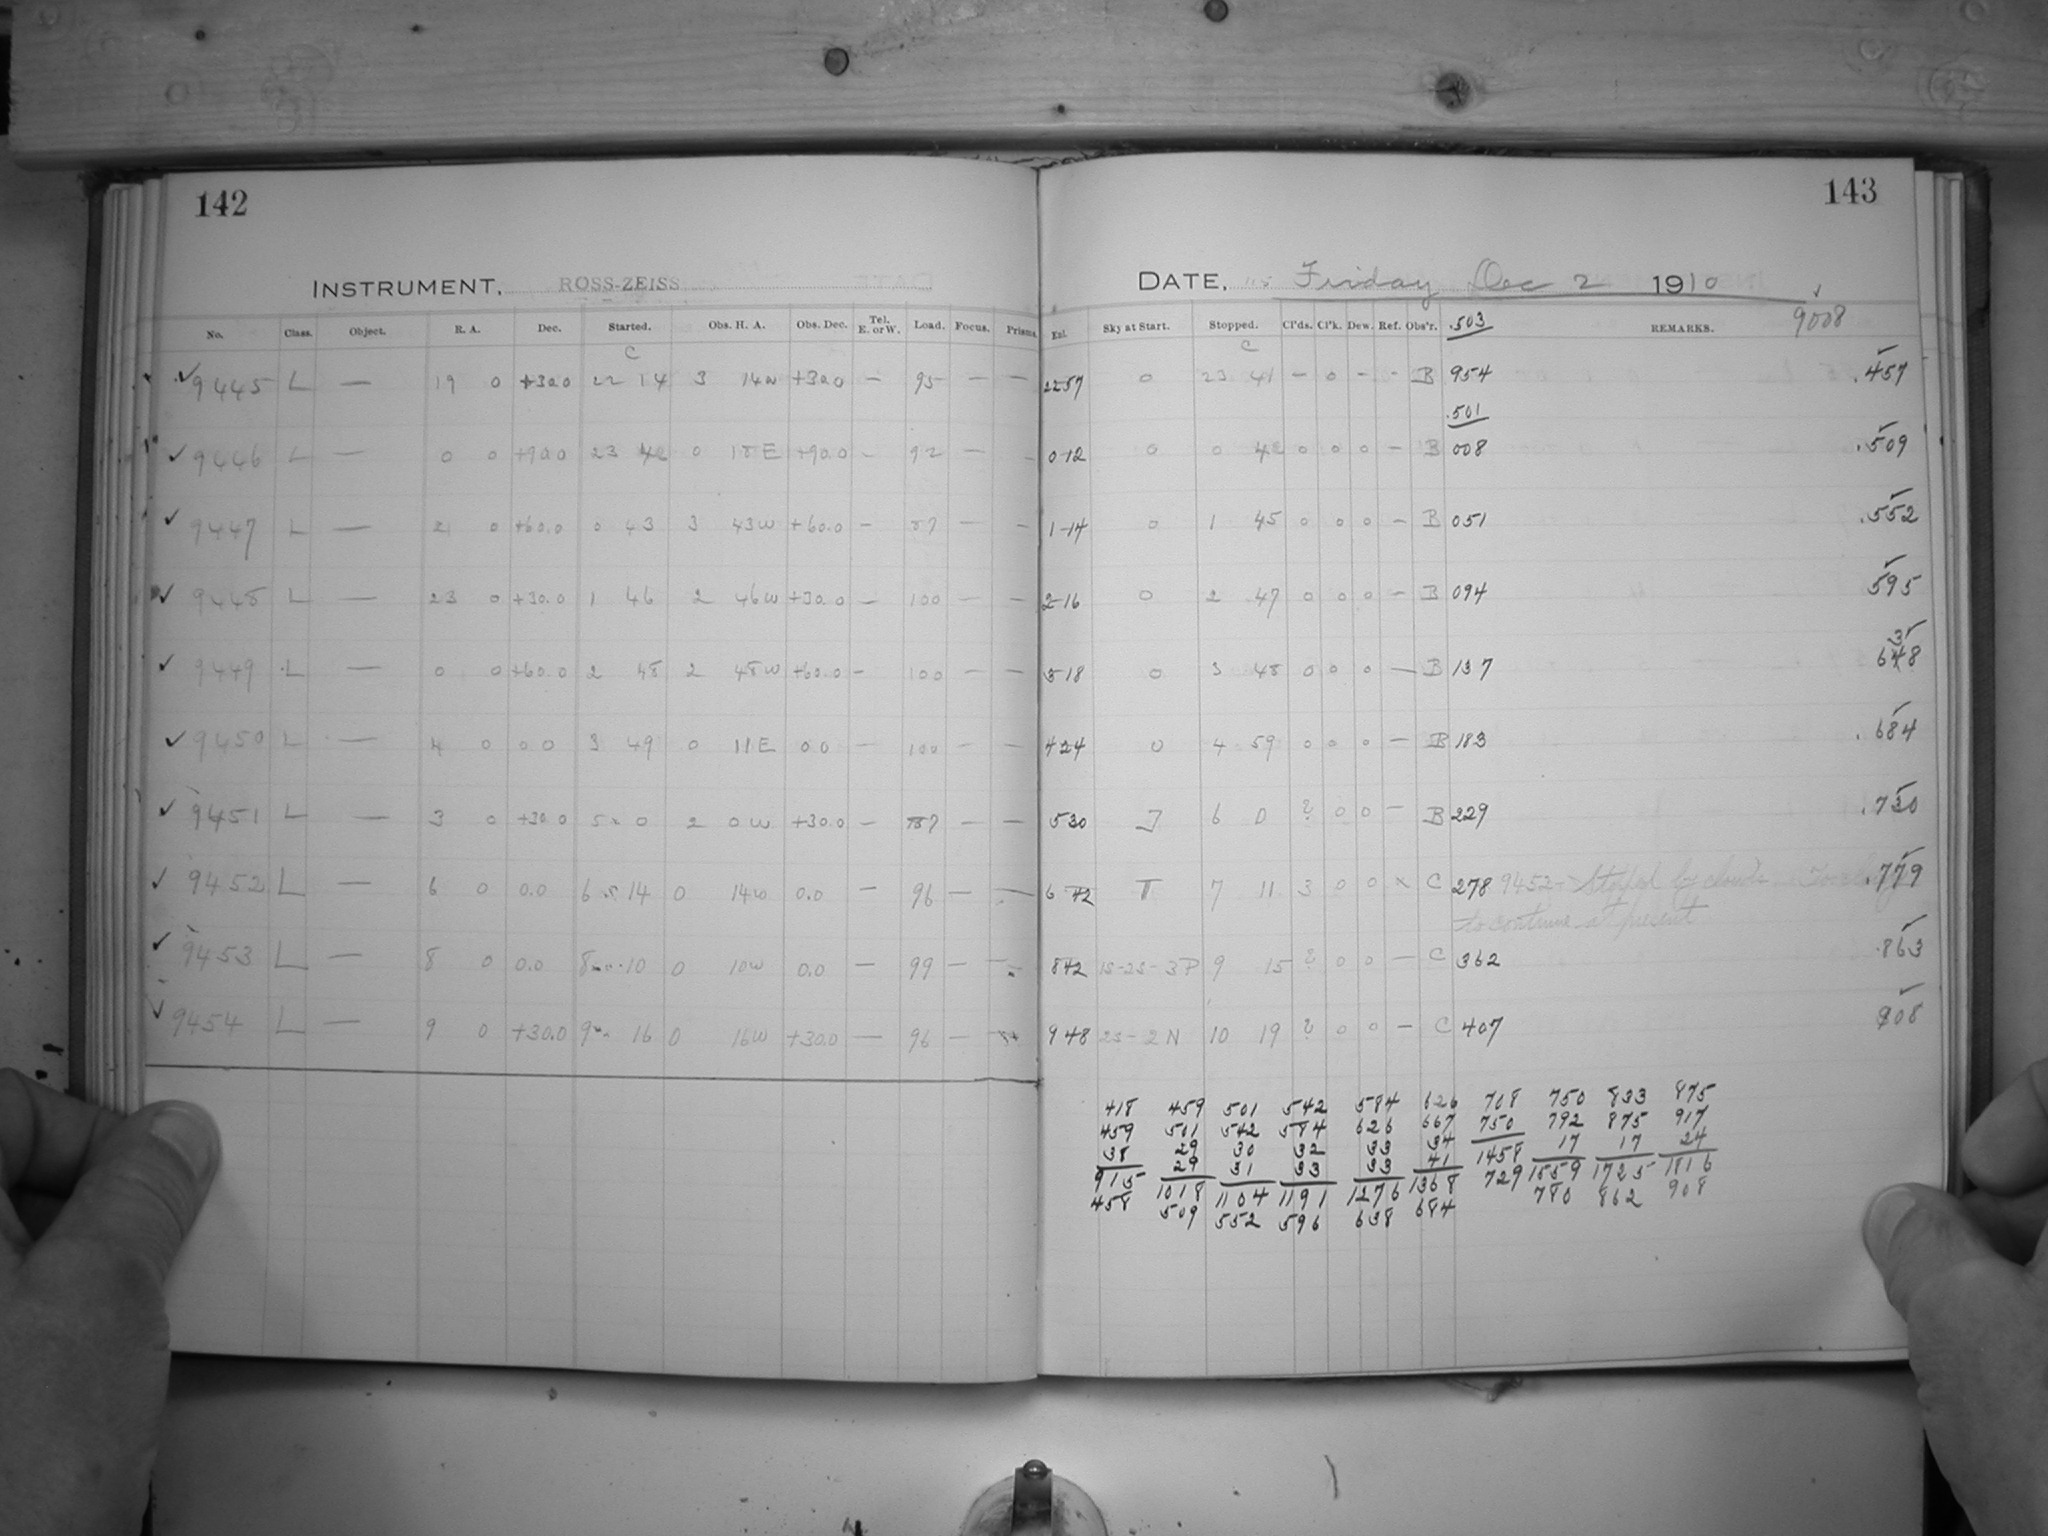 142
INSTRUMENT, ROSS-ZEISS
No. Class. Object. R. A. Dec. Started. Obs. H. A. Obs. Dec. Tel. E. or W. Load. Focus. Prisms
C
✓ 9445 L — 19 0 +30.0 22 14 3 14W +30.0 — 95 — —
✓ 9446 L — 0 0 +90.0 23 42 0 18E +90.0 — 92 — —
✓ 9447 L — 21 0 +60.0 0 43 3 43W +60.0 — 87 — —
✓ 9448 L — 23 0 +30.0 1 46 2 46W +30.0 — 100 — —
✓ 9449 L — 0 0 +60.0 2 48 2 48W +60.0 — 100 — —
✓ 9450 L — 4 0 0 0 3 49 0 11E 0 0 — 100 — —
✓ 9451 L — 3 0 +30.0 5 0 2 0W +30.0 — 87 — —
✓ 9452 L — 6 0 0.0 6 14 0 14W 0.0 — 96 — —
✓ 9453 L — 8 0 0.0 8 10 0 10W 0.0 — 99 — —
✓ 9454 L — 9 0 +30.0 9 16 0 16W +30.0 — 96 —
143
DATE, Friday Dec 2 1910
Exl. Sky at Start. Stopped. Cl'ds. Cl'k. Dew. Ref. Obs'r. .503 REMARKS. 9008
C
2257 0 23 41 — 0 — - B 954 .457
.501
0 12 0 0 42 0 0 0 — B 008 .509
1 14 0 1 45 0 0 0 — B 051 .552
2 16 0 2 47 0 0 0 — B 094 595
3
3 18 0 3 48 0 0 0 — B 137 648
4 24 0 4 59 0 0 0 — B 183 .684
5 30 J 6 0 ? 0 0 — B 229 .730
6 42 T 7 11 3 0 0 x C 278 9452- Stopped by clouds .779
to continue at present
8 42 1S-2S-3P 9 15 ? 0 0 — C 362 .863
9 48 2S-2N 10 19 ? 0 0 — C 407 908
418 459 501 542 584 626 708 750 833 875
459 501 542 584 626 667 750 792 875 917
38 29 30 32 33 34 1458 17 17 24
29 31 33 33 41
915 1018 1104 1191 1276 1368 729 1559 1725 1816
458 509 552 596 638 684 780 862 908